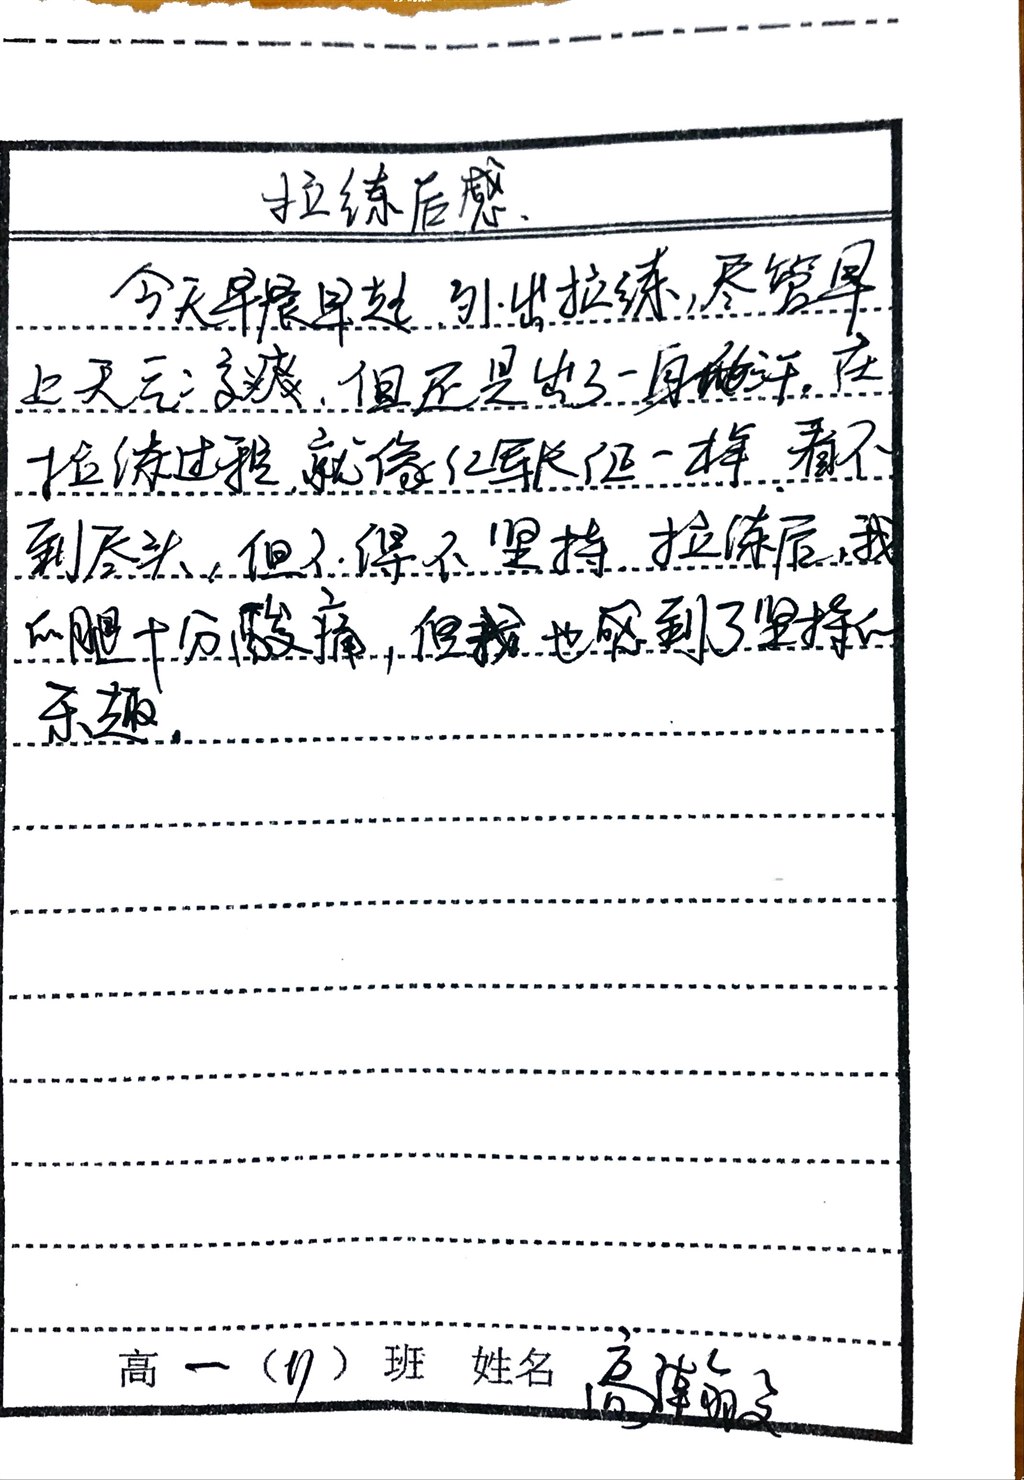 拉练后感.
今天早晨早起,外出拉练,尽管早
上天气凉爽,但还是出了一身的汗。在
拉练过程,就像红军长征一样,看不
到尽头,但不得不坚持。拉练后,我
的腿十分酸痛,但我也感到了坚持的
乐趣。
高一( )班 姓名 高